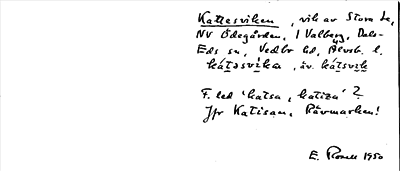 Kattesviken, vik av Stora Le,
NV Ödegården, i Valberg, Dals-
Eds sn, Vedbo hd, Älvsb. l.
kátəsvìkən, äv. kátsvik
F. led 'katsa, katiza'?
Jfr Katisan, Rävmarken!
E. 1950